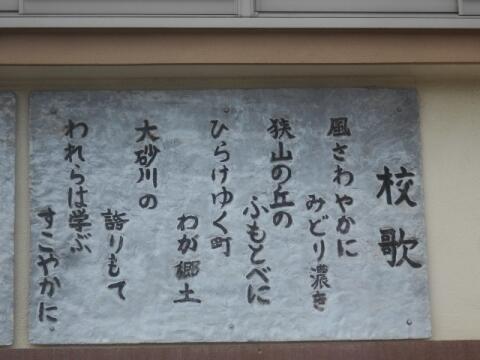 校歌
風さわやかに
みどり濃き
狭山の丘の
ふもとべに
ひらけゆく町
わが郷土
大砂川の
誇りもて
われらは学ぶ
すこやかに